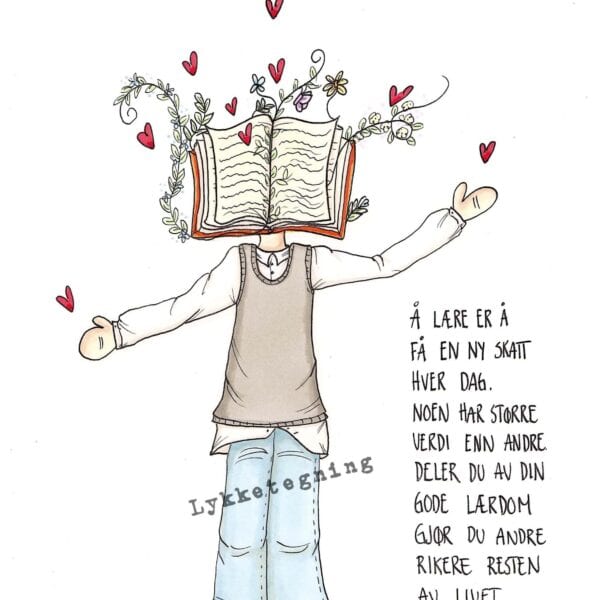 Å LÆRE ER Å
FÅ EN NY SKATT
HVER DAG.
NOEN HAR STØRRE
VERDI ENN ANDRE.
DELER DU AV DIN
GODE LÆRDOM
GJØR DU ANDRE
RIKERE RESTEN
AV LIVET
Lykketegning